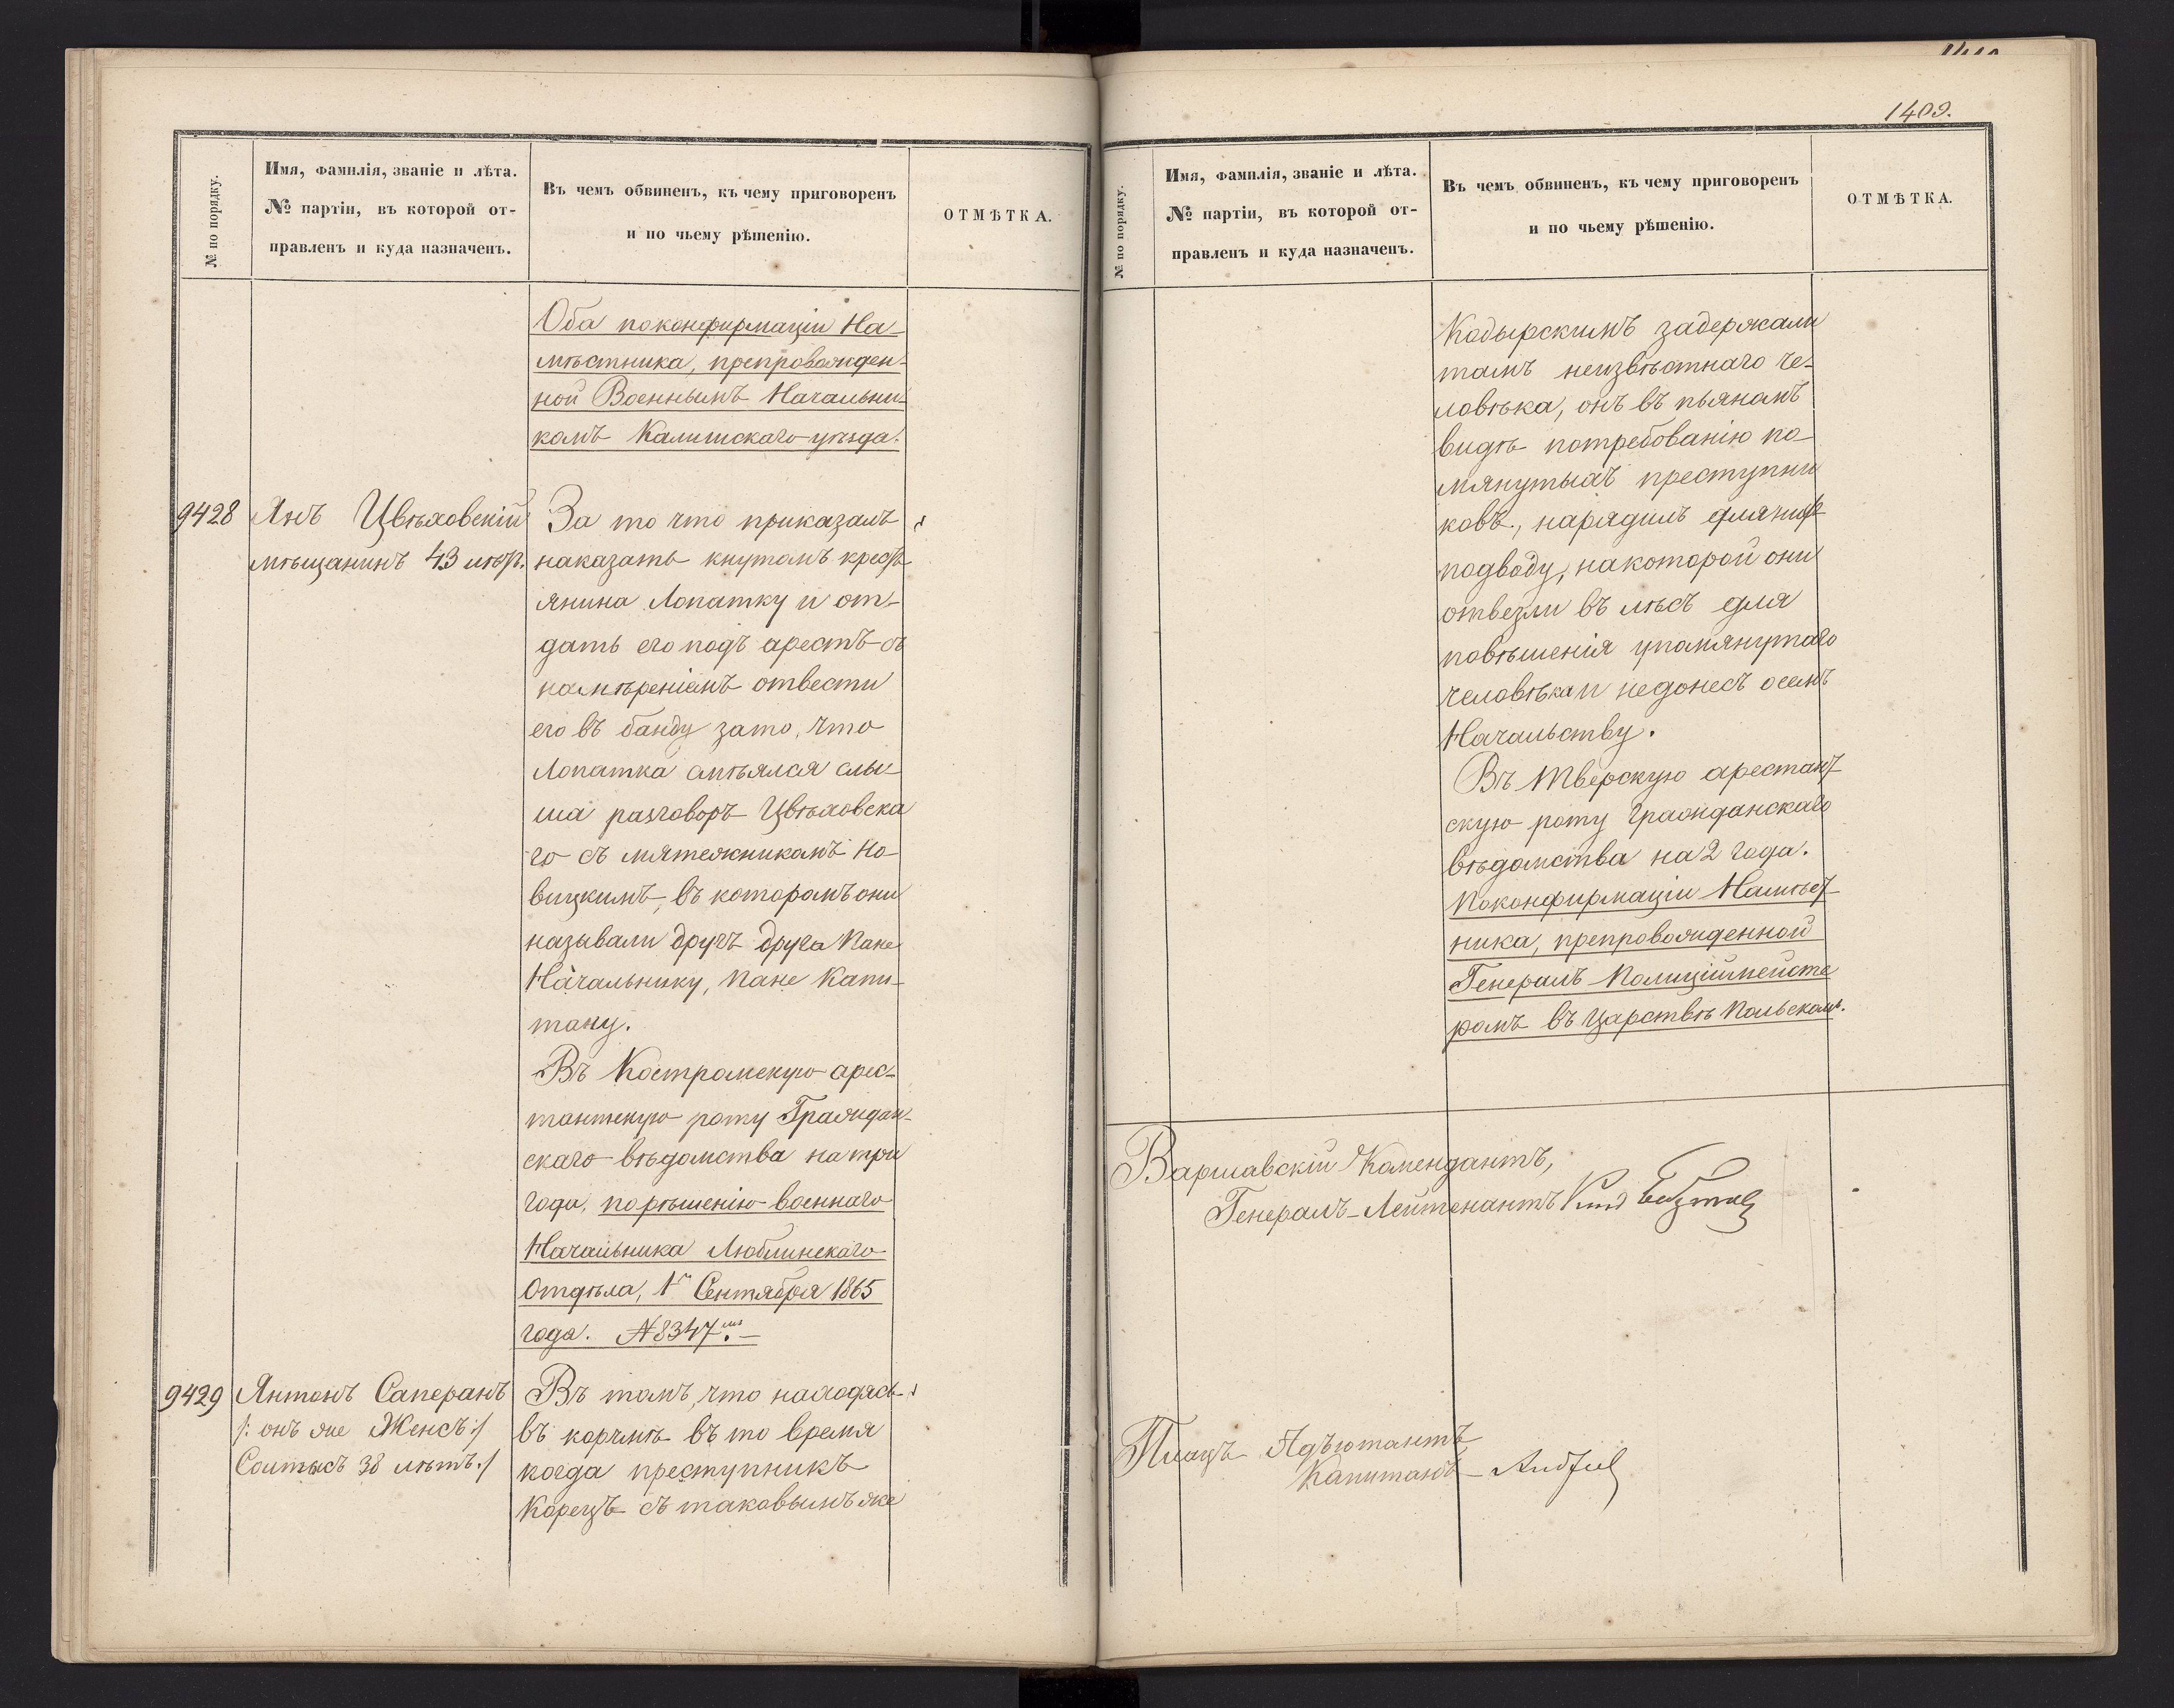 № по порядку.
Имя, фамилія, званіе и лѣта.
№ партіи, въ которой от-
правленъ и куда назначенъ.
Въ чемъ обвиненъ, къ чему приговоренъ
и по чьему рѣшенію.
ОТМѢТКА.
Оба по конфирмаціи На-
мѣстника, препровожден-
ной Военнымъ Начальни-
комъ Калишскаго уѣзда.
9428
Янъ Цвѣховскій
мѣщанинъ 43 лѣтъ.
За то что приказалъ
наказать кнутомъ кресть-
янина Лопатку и от-
дать его подъ арестъ съ
намѣреніемъ отвести
его въ банду за то, что
Лопатка смѣялся слы-
ша разговоръ Цвѣховска
го съ мятежникомъ Но-
вицкимъ, въ которомъ они
называли другъ друга Пане
Начальнику, Пане Капи-
тану.
Въ Костромскую арес-
тантскую роту Граждан-
скаго вѣдомства на три
года, по рѣшенію военнаго
Начальника Люблинскаго
Отдѣла, 1го Сентября 1865
года. №8347.
9429
Антонъ Саперанъ
/: онъ же Женсъ:/
38 лѣтъ./
Въ томъ, что находясь
въ корчмѣ въ то время
когда преступникъ
Корецъ съ таковымъ же
1409.
№ по порядку.
Имя, фамилія, званіе и лѣта.
№ партіи, въ которой от-
правленъ и куда назначенъ.
Въ чемъ обвиненъ, къ чему приговоренъ
и по чьему рѣшенію.
ОТМѢТКА.
Кодырскимъ задержали
тамъ неизвѣстнаго че-
ловѣка, онъ въ пьяномъ
видѣ по требованію по-
мянутыхъ преступни
ковъ, нарядилъ для нихъ
подводу, на которой они
отвезли въ лѣсъ для
повѣшенія упомянутаго
человѣка и недонесъ о семъ
Начальству.
Въ Тверскую арестант-
скую роту Гражданскаго
вѣдомства на 2 года.
По конфирмаціи Намѣст-
ника, препровожденной
Генералъ Полиціймейсте
ромъ въ Царствѣ Польскомъ.
Варшавскій Комендантъ,
Генералъ-Лейтенантъ
Плацъ Адъютантъ
Капитанъ